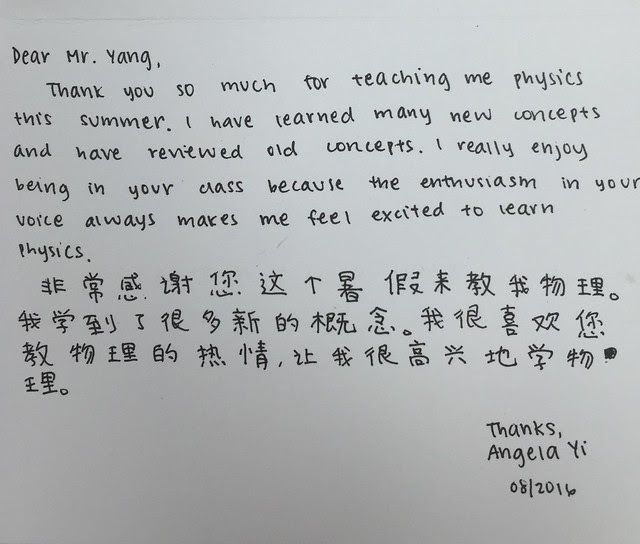 Dear Mr. Yang,
Thank you so much for teaching me physics
this summer. I have learned many new concepts
and have reviewed old concepts. I really enjoy
being in your class because the enthusiasm in your
voice always makes me feel excited to learn
physics.
非常感谢您这个暑假来教我物理。
我学到了很多新的概念。我很喜欢您
教物理的热情,让我很高兴地学物
理。
Thanks,
Angela Yi
08/2016